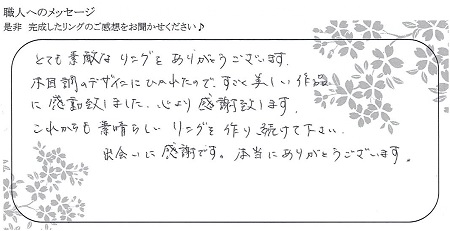 職人へのメッセージ
是非 完成したリングのご感想をお聞かせください♪
とても素敵な リングを ありがとうございます.
木目調のデザインにひかれたので、すごく美しい作品
に感動致しました. 心より 感謝致します.
これからも 素晴らしい リングを 作り続けて下さい.
出会いに感謝です。本当にありがとうございます。